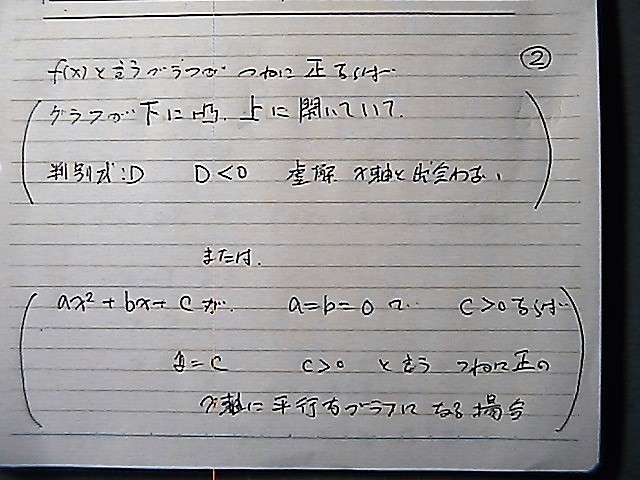 ②
f(x)と言うグラフが つねに 正ならば
グラフが 下に凸、上に開いていて、
判別式:D D<0 虚解 x軸と出会わない
または、
ax²+bx+cが、 a=b=0 で c>0ならば
y=c c>0 と言う つねに正の
x軸に平行なグラフになる場合